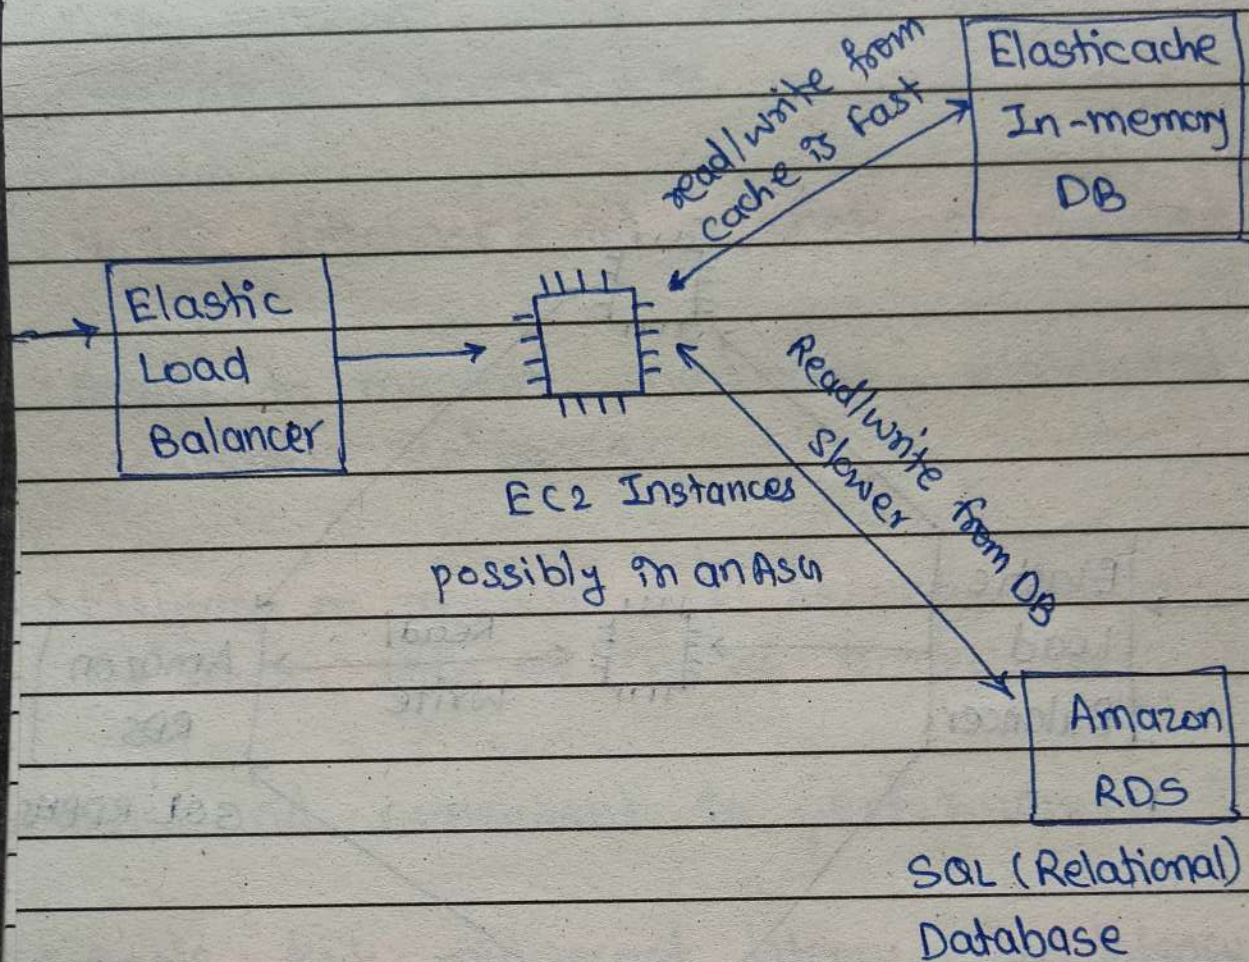 Elasticache
In-memory
DB
read/write from
cache is fast
Elastic
Load
Balancer
EC2 Instances
possibly in an ASG
Read/write from DB
slower
Amazon
RDS
SQL (Relational)
Database